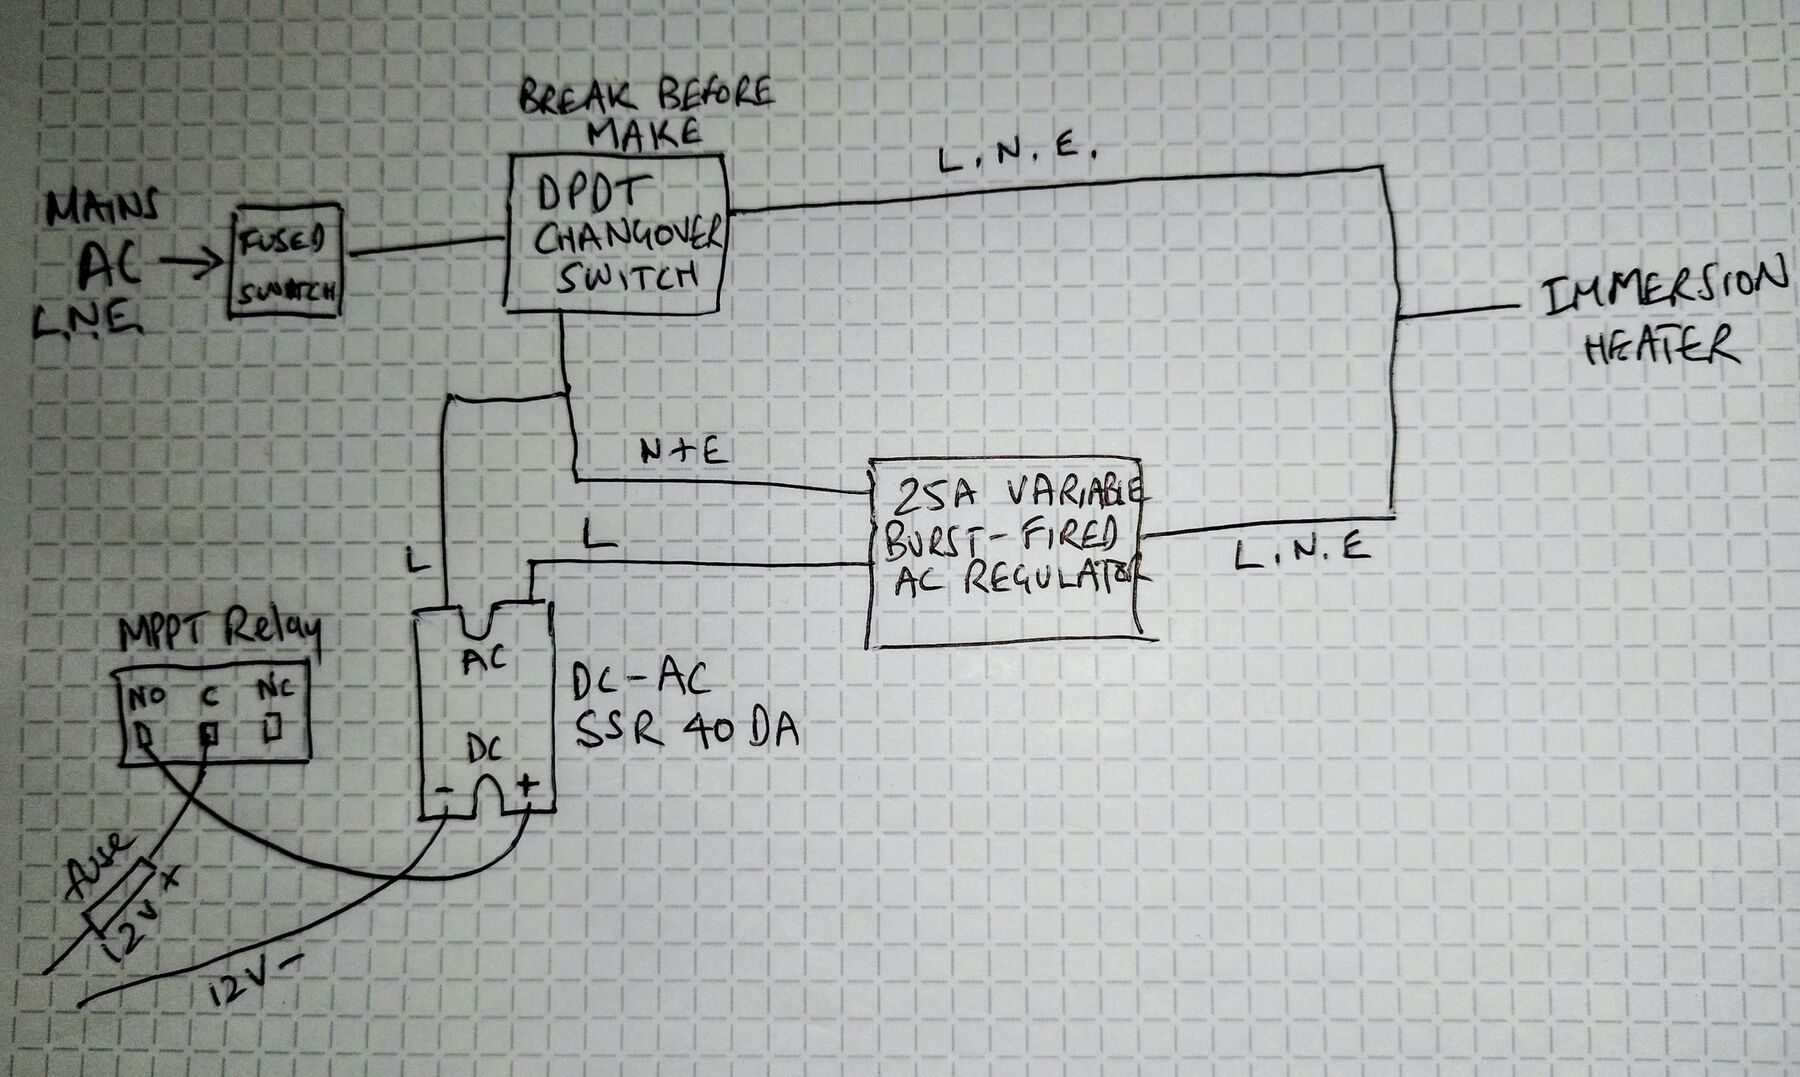 BREAK BEFORE
MAKE
MAINS
AC
L.N.E.
FUSED
SWITCH
DPDT
CHANGOVER
SWITCH
L.N.E.
IMMERSION
HEATER
N+E
L
L
25A VARIABLE
BURST-FIRED
AC REGULATOR
L.N.E
MPPT Relay
NO C NC
AC
DC
- +
DC-AC
SSR 40DA
fuse
12V+
12V-